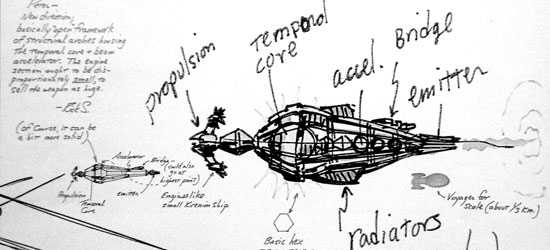 Peter—
New direction,
basically open framework
of structural arches housing
the temporal core + beam
accelerator. The engine
section ought to be dis-
proportionately small, to
sell the weapon as huge.
—Rick S.
(of course, it can be
a bit more solid)
propulsion
Temporal
core
accel.
Bridge
emitter
radiators
Accelerator
Bridge
(could also
go at
highest point)
Propulsion
Temporal
Core
emitter
Engines like
small Krenim ship
Basic hex
Voyager for
scale (about 1/3 km)